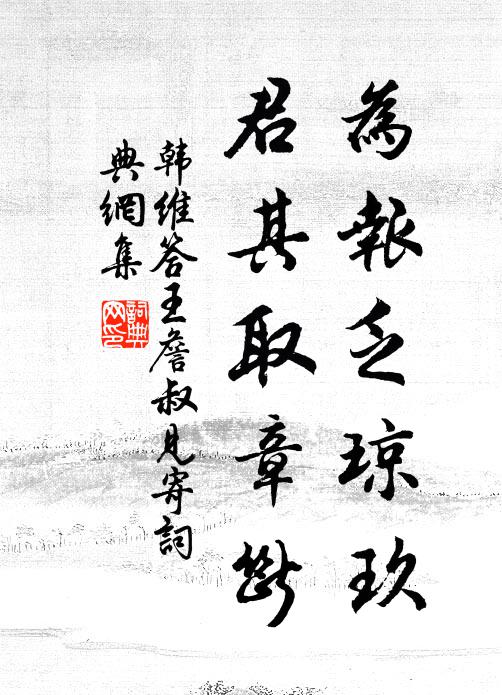 為報乏瓊玖
君其取章斷
韩維答王詹叔見寄詞
典網集
詞典
网印